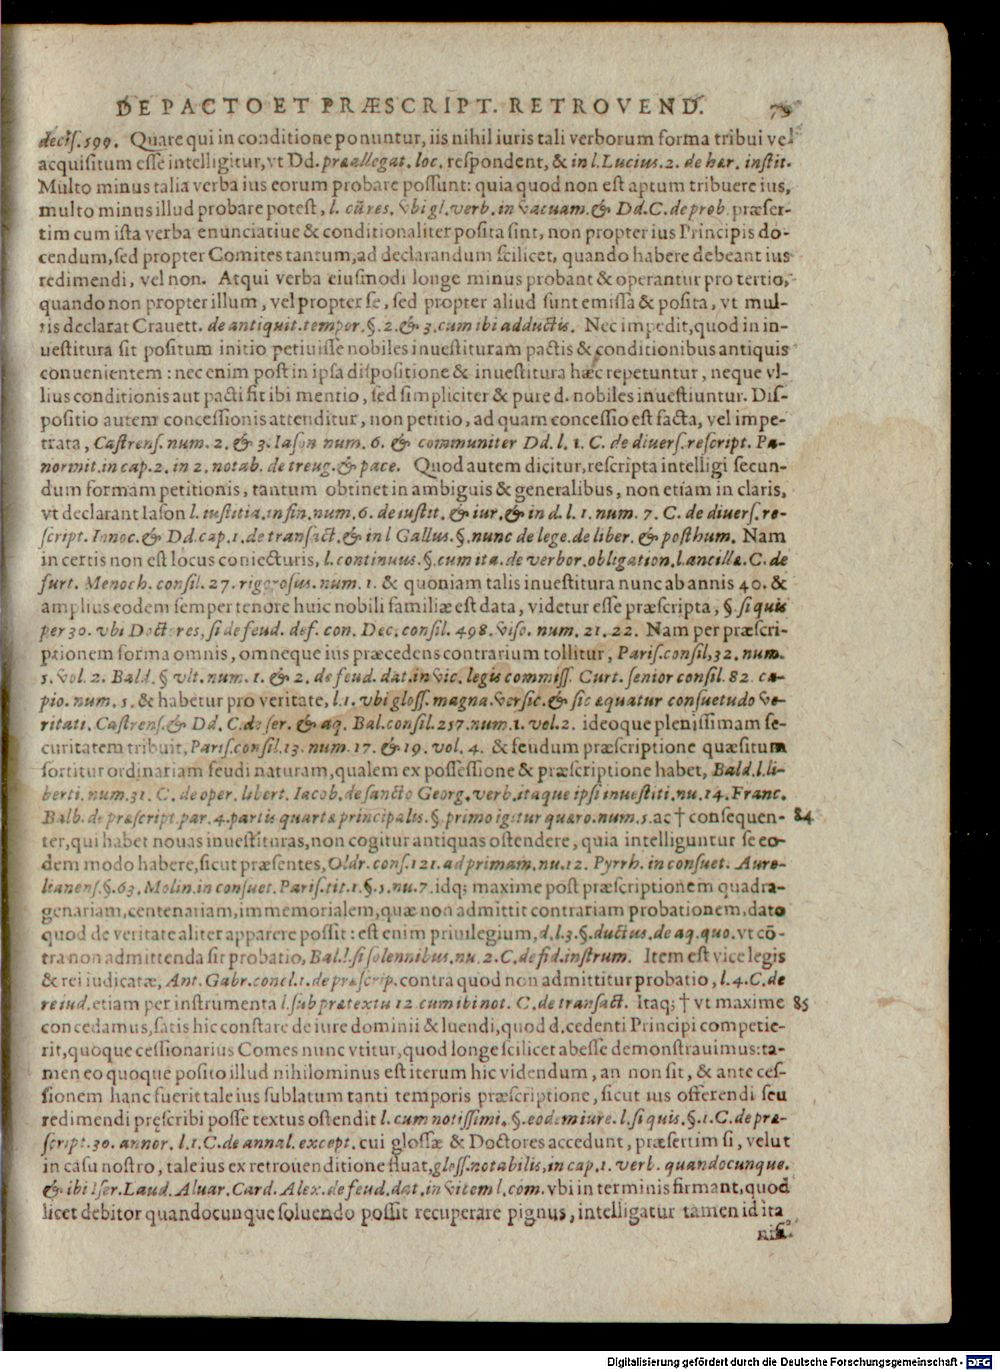 DE PACTO ET PRÆSCRIPT. RETROVEND. 79
decis. 599. Quare qui in conditione ponuntur, iis nihil iuris tali verborum forma tribui vel
acquisitum esse intelligitur, vt Dd. præallegat. loc. respondent, & in l. Lucius. 2. de hær. instit.
Multo minus talia verba ius eorum probare possunt: quia quod non est aptum tribuere ius,
multo minus illud probare potest, l. cũ res. vbi gl. verb. in vacuam. & Dd. C. de prob. præser-
tim cum ista verba enunciatiue & conditionaliter posita sint, non propter ius Principis do-
cendum, sed propter Comites tantum, ad declarandum scilicet, quando habere debeant ius
redimendi, vel non. Atqui verba eiusmodi longe minus probant & operantur pro tertio,
quando non propter illum, vel propter se, sed propter aliud sunt emissa & posita, vt mul-
tis declarat Crauett. de antiquit. tempor. §. 2. & 3. cum ibi adductis. Nec impedit, quod in in-
uestitura sit positum initio petiuisse nobiles inuestituram pactis & conditionibus antiquis
conuenientem: nec enim post in ipsa dispositione & inuestitura hæc repetuntur, neque vl-
lius conditionis aut pacti fit ibi mentio, sed simpliciter & pure d. nobiles inuestiuntur. Dis-
positio autem concessionis attenditur, non petitio, ad quam concessio est facta, vel impe-
trata, Castrens. num. 2. & 3. Iason num. 6. & communiter Dd. l. 1. C. de diuers. rescript. Pa-
normit. in cap. 2. in 2. notab. de treug. & pace. Quod autem dicitur, rescripta intelligi secun-
dum formam petitionis, tantum obtinet in ambiguis & generalibus, non etiam in claris,
vt declarant Iason l. iustitia. in fin. num. 6. de iustit. & iur. & in d. l. 1. num. 7. C. de diuers. re-
script. Innoc. & Dd. cap. 1. de transact. & in l Gallus. §. nunc de lege. de liber. & posthum. Nam
in certis non est locus coniecturis, l. continuus. §. cum ita. de verbor. obligation. l. ancillæ. C. de
furt. Menoch. consil. 27. rigorosus. num. 1. & quoniam talis inuestitura nunc ab annis 40. &
amplius eodem semper tenore huic nobili familiæ est data, videtur esse præscripta, §. si quis
per 30. vbi Doctores, si de feud. def. con. Dec. consil. 498. viso. num. 21. 22. Nam per præscri-
ptionem forma omnis, omneque ius præcedens contrarium tollitur, Paris. consil, 32. num.
5. vol. 2. Bald. § vlt. num. 1. & 2. de feud. dat. in vic. legis commiss. Curt. senior consil. 82. ca-
pio. num. 5. & habetur pro veritate, l. 1. vbi gloss. magna. versic. & sic æquatur consuetudo ve-
ritati. Castrens. & Dd. C. de ser. & aq. Bal. consil. 257. num. 1. vel. 2. ideoque plenissimam se-
curitatem tribuit, Paris. consil. 13. num. 17. & 19. vol. 4. & feudum præscriptione quæsitum
sortitur ordinariam feudi naturam, qualem ex possessione & præscriptione habet, Bald. l. li-
berti. num. 31. C. de oper. libert. Iacob. de sancto Georg. verb. itaque ipsi inuestiti. nu. 14. Franc.
Balb. de præscript. par. 4. partis quartæ principalis. §. primo igitur quæro. num. 5. ac † consequen- 84
ter, qui habet nouas inuestituras, non cogitur antiquas ostendere, quia intelliguntur se eo-
dem modo habere, sicut præsentes, Oldr. cons. 121. ad primam. nu. 12. Pyrrh. in consuet. Aure-
lianens. §. 63. Molin. in consuet. Paris. tit. 1. §. 5. nu. 7. idq; maxime post præscriptionem quadra-
genariam, centenariam, immemorialem, quæ non admittit contrariam probationem, dato
quod de veritate aliter apparere possit: est enim priuilegium, d. l. 3. §. ductus. de aq. quo. vt cõ-
tra non admittenda sit probatio, Bal. l. si solennibus. nu. 2. C. de fid. instrum. Item est vice legis
& rei iudicatæ, Ant. Gabr. concl. 1. de præscrip. contra quod non admittitur probatio, l. 4. C. de
re iud. etiam per instrumenta l. sub prætextu 12. cum ibi not. C. de transact. Itaq; † vt maxime 85
concedamus, satis hic constare de iure dominii & luendi, quod d. cedenti Principi competie-
rit, quoque cessionarius Comes nunc vtitur, quod longe scilicet abesse demonstrauimus: ta-
men eo quoque posito illud nihilominus est iterum hic videndum, an non sit, & ante ces-
sionem hanc fuerit tale ius sublatum tanti temporis præscriptione, sicut ius offerendi seu
redimendi pręscribi posse textus ostendit l. cum notissimi. §. eodem iure. l. si quis. §. 1. C. de præ-
script. 30. annor. l. 1. C. de annal. except. cui glossæ & Doctores accedunt, præsertim si, velut
in casu nostro, tale ius ex retrouenditione fluat, gloss. notabilis, in cap. 1. verb. quandocunque.
& ibi Iser. Laud. Aluar. Card. Alex. de feud. dat. in vitem l. com. vbi in terminis firmant, quod
licet debitor quandocunque soluendo possit recuperare pignus, intelligatur tamen id ita
Digitalisierung gefördert durch die Deutsche Forschungsgemeinschaft - DFG